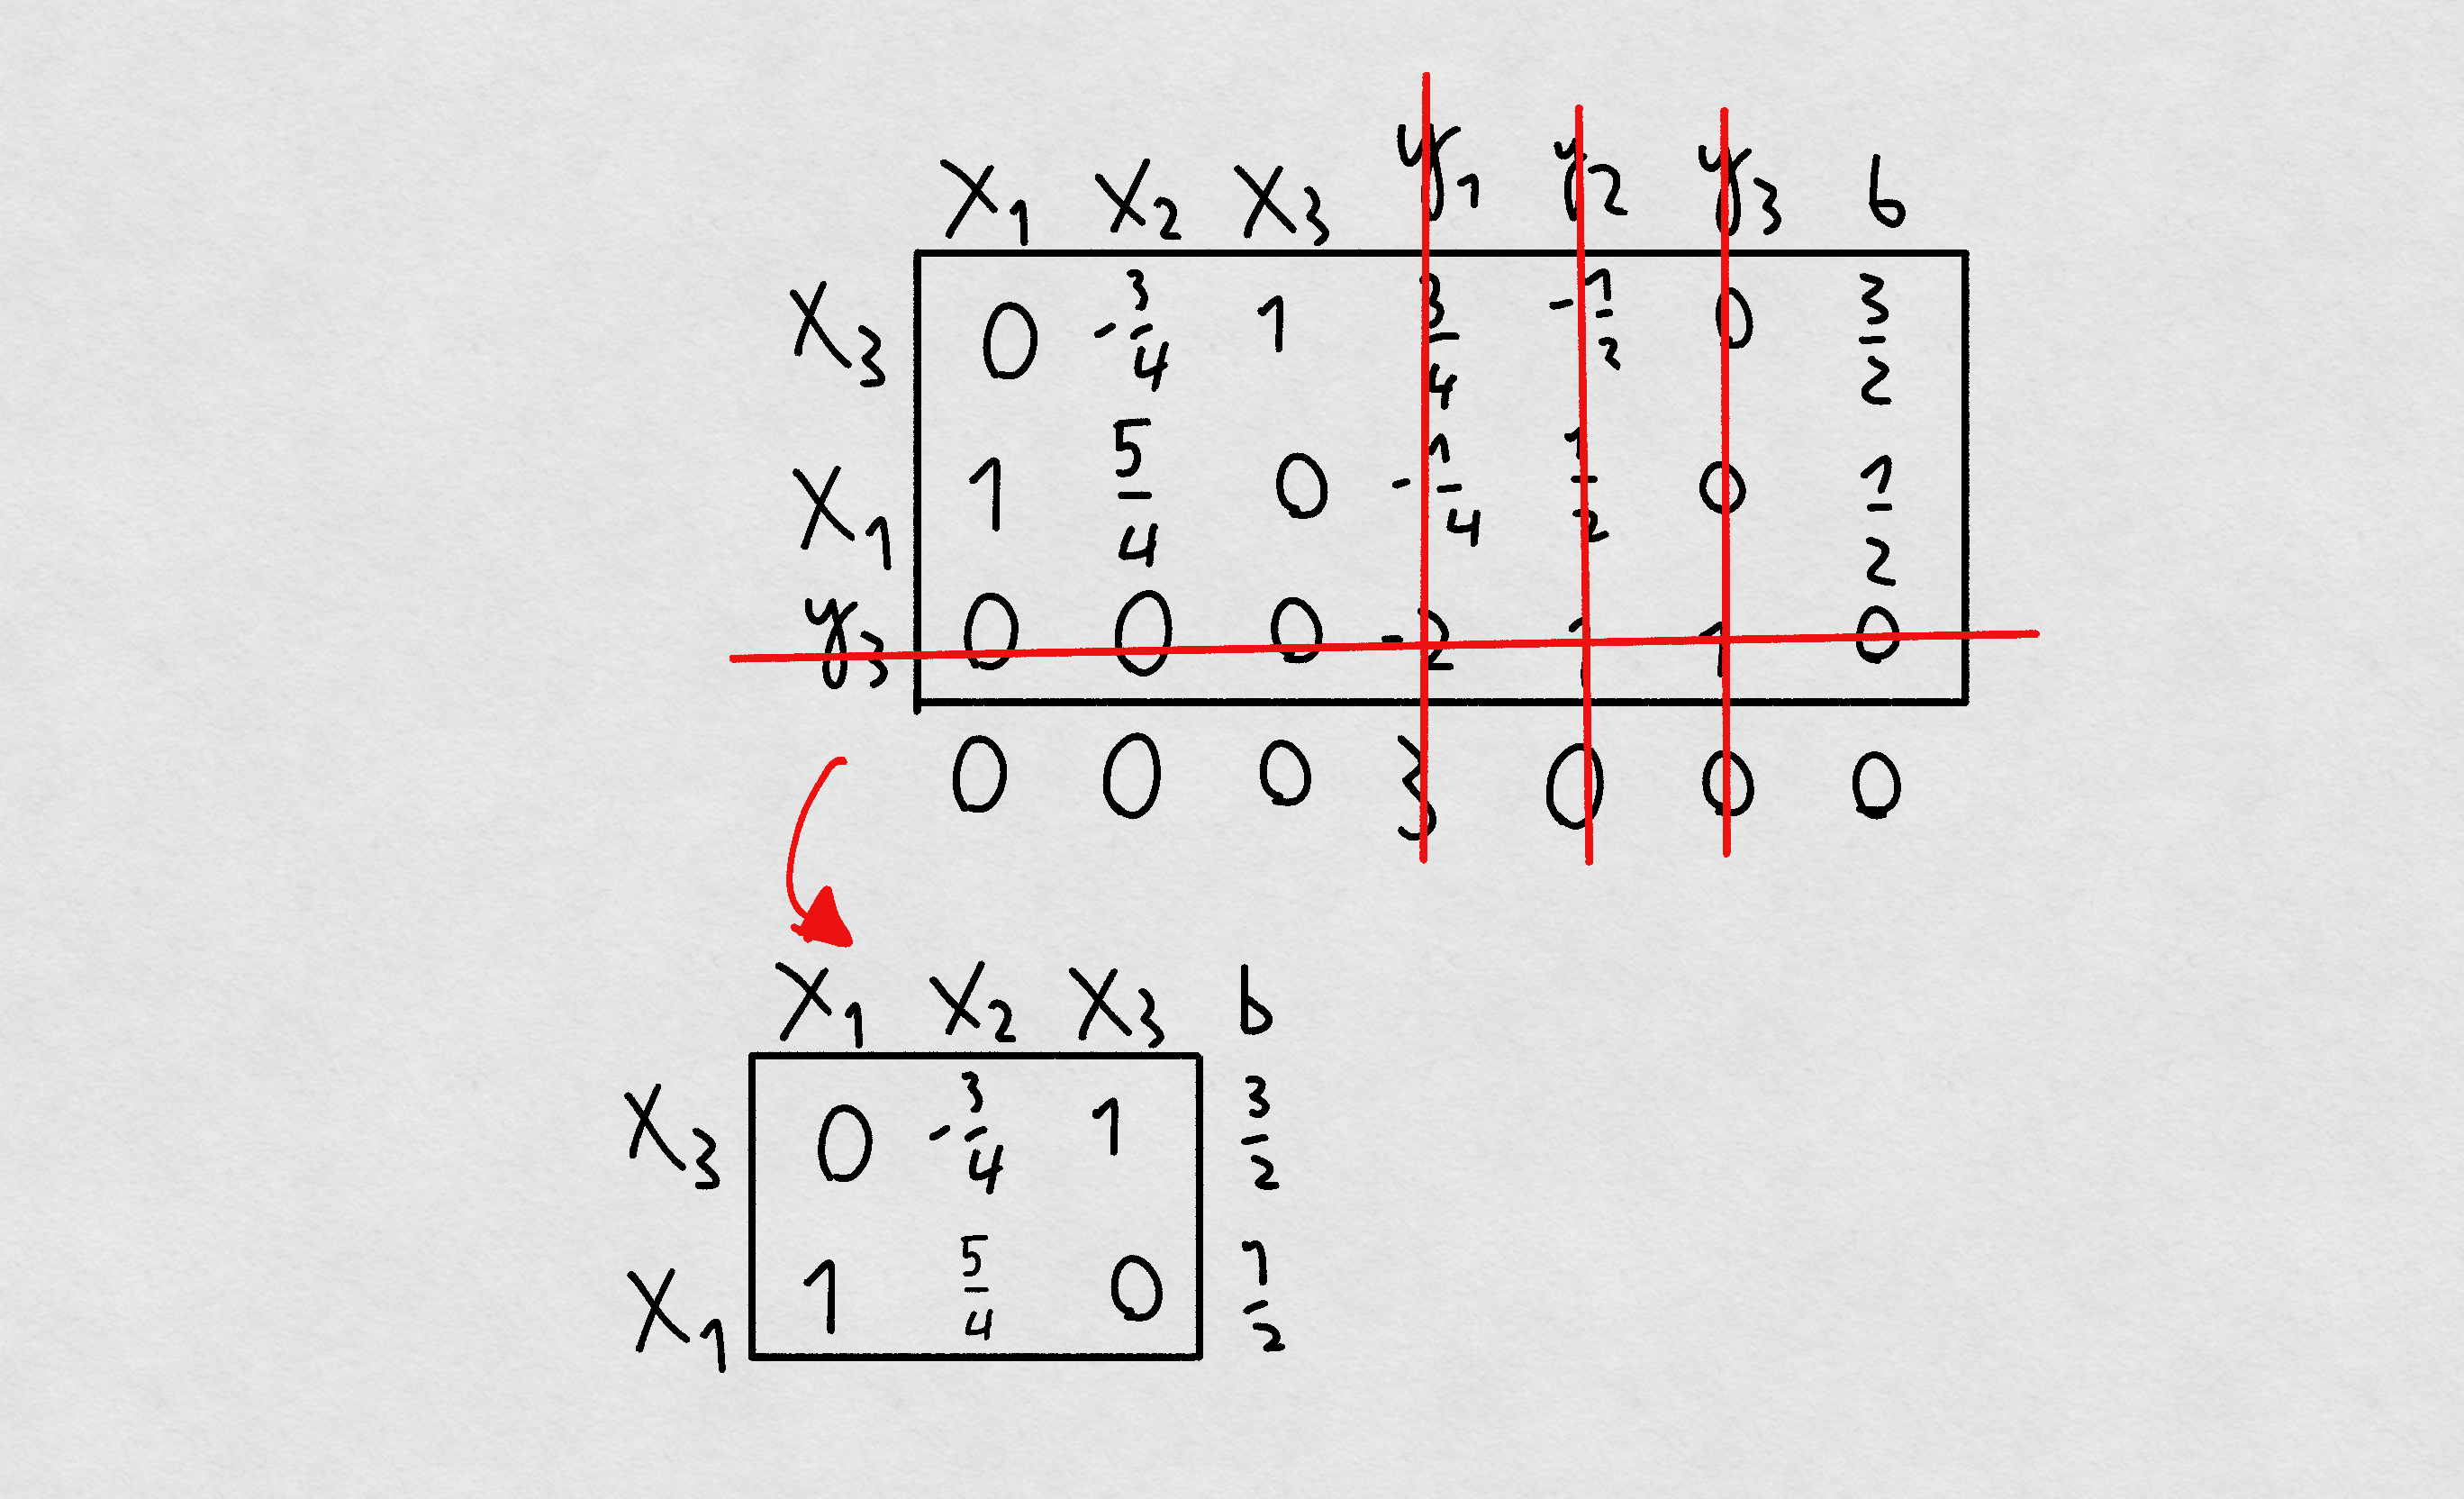 X1 X2 X3 y1 y2 y3 b
X3 0 -3/4 1 3/4 -1/2 0 3/2
X1 1 5/4 0 -1/4 1/2 0 1/2
y3 0 0 0 -2 1 1 0
0 0 0 3 0 0 0
X1 X2 X3 b
X3 0 -3/4 1 3/2
X1 1 5/4 0 1/2